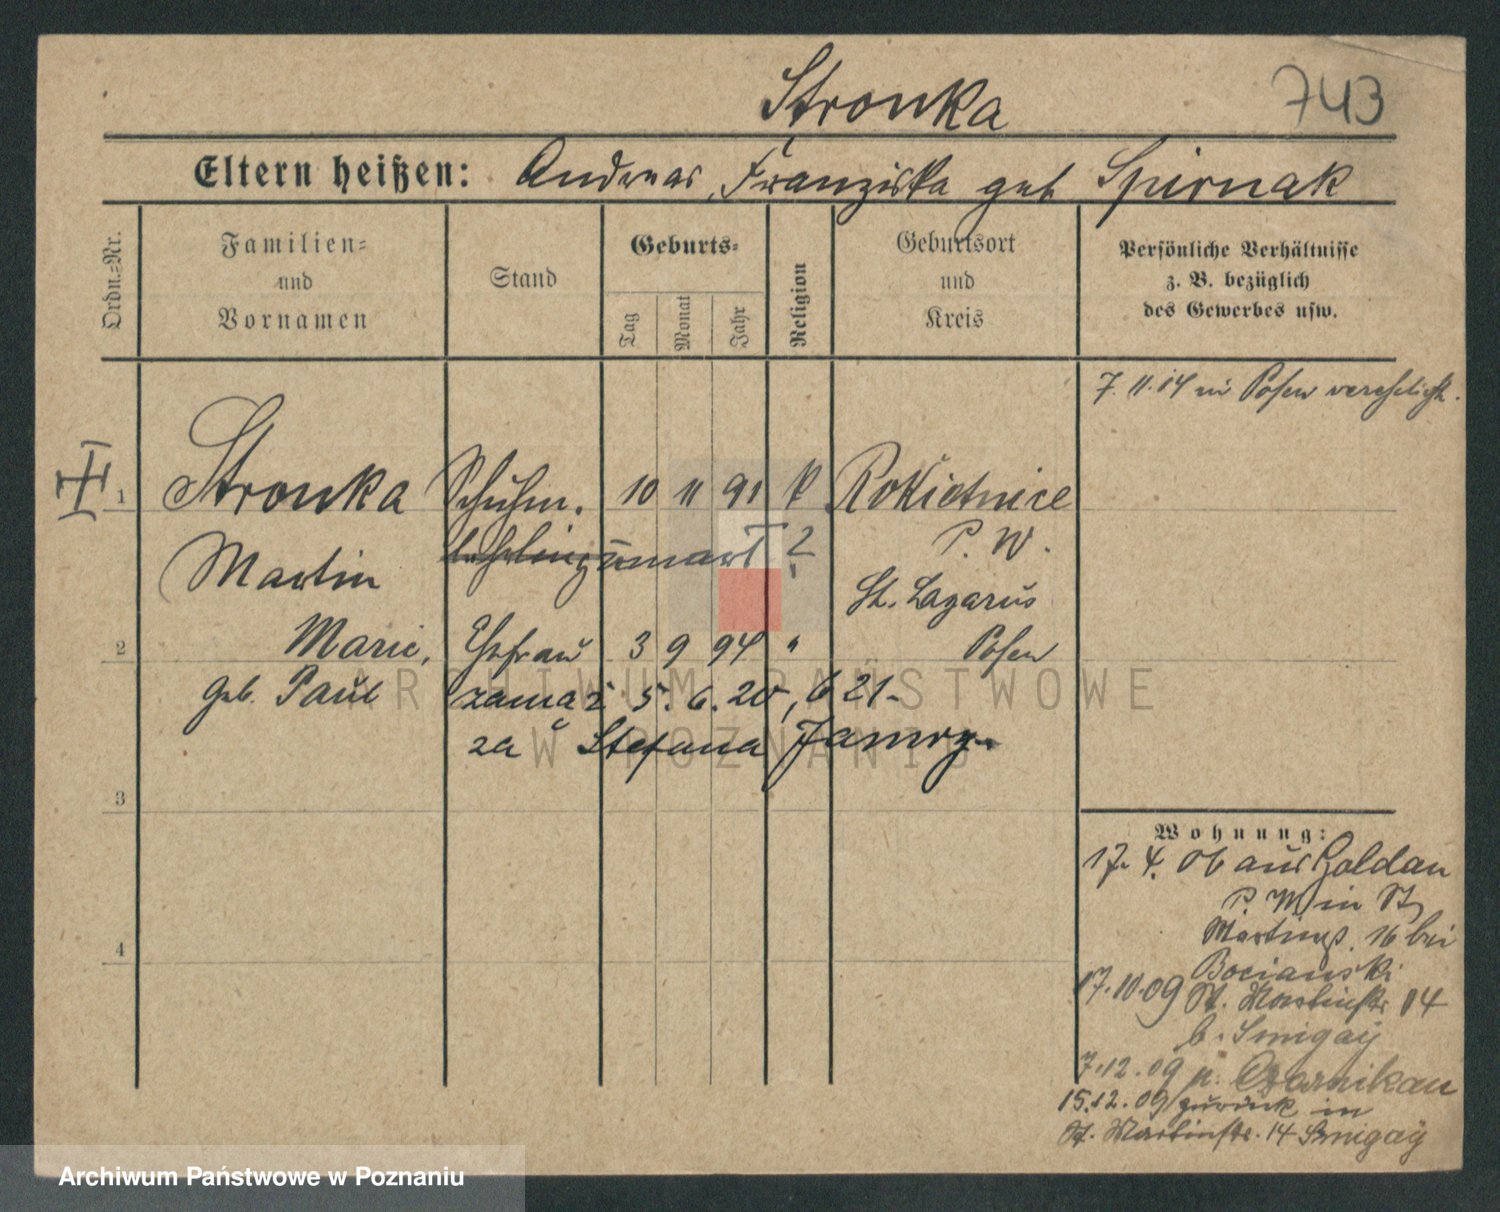 Stronka 743
Eltern heißen: Andreas, Franziska geb Spirnak
Ordn.=Nr.
Familien=
und
Vornamen
Stand
Geburts=
Tag Monat Jahr
Religion
Geburtsort
und
Kreis
Persönliche Verhältnisse
z. B. bezüglich
des Gewerbes usw.
7. 11. 14 in Posen verehelicht.
1 Stronka Schuhm. 10 11 91 k Rokietnice
Martin lehrling umarł ? P. W.
St. Lazarus
2 Marie, Ehefrau 3 9 94 " Posen
geb. Paul zamąż 5. 6. 20, b 21
za Stefana Jamry
3
4
Wohnung:
17. 4. 06 aus Goldau
P. W in St
Martinstr. 16 bei
Bocianski
17.10.09 St. Martinstr 14
b. Smigaÿ
7.12.09 n. Czarnikau
15.12.09 zurück in
St. Martinstr. 14 Smigaÿ
ARCHIWUM PAŃSTWOWE
W POZNANIU
Archiwum Państwowe w Poznaniu